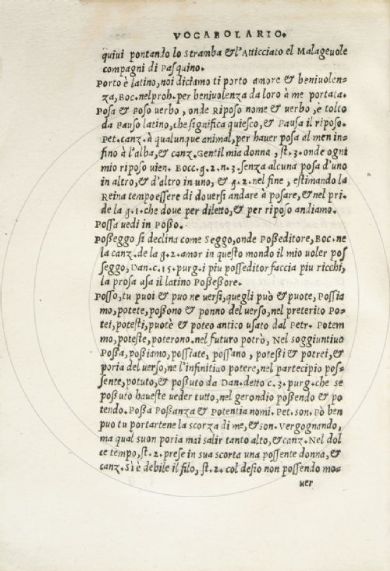 VOCABOLARIO.
quiui pontando lo Stramba & l'Atticciato el Malageuole
compagni di Pasquino.
Porto è latino, noi diciamo ti porto amore & beniuolen-
za, Boc. nel proh. per beniuolenza da loro à me portata.
Posa & Poso uerbo, onde Riposo nome & uerbo, è tolto
da Pauso latino, che significa quiesco, & Pausa il riposo.
Pet. canz. à qualunque animal, per hauer posa al men in-
fino à l'alba, & canz. Gentil mia donna, st. 3. onde ogni
mio riposo uien. Bocc. g. 2. n. 3. senza alcuna posa d'uno
in altro, & d'altro in uno, & g. 2. nel fine, estimando la
Reina tempo essere di douersi andare à posare, & nel pri.
de la g. 1. che doue per diletto, & per riposo andiamo.
Possa uedi in Posso.
Posseggo si declina come Seggo, onde Posseditore, Boc. ne
la canz. de la g. 2. amor in questo mondo il mio uoler pos
seggo, Dan. c. 15. purg. i piu posseditor faccia piu ricchi,
la prosa usa il latino Possessore.
Posso, tu puoi & puo ne uersi, quegli può & puote, Possia
mo, potete, possono & ponno del uerso, nel preterito Po-
tei, potesti, puotè & poteo antico usato dal Petr. Potem
mo, poteste, poterono. nel futuro potrò, Nel soggiuntiuo
Possa, possiamo, possiate, possano, potessi & potrei, &
poria del uerso, ne l'infinitiuo potere, nel partecipio pos-
sente, potuto, & possuto da Dan. detto c. 3. purg. che se
possuto haueste ueder tutto, nel gerondio possendo & po
tendo. Possa Possanza & Potentia nomi. Pet. son. Pò ben
puo tu portartene la scorza di me, & son. Vergognando,
ma qual suon poria mai salir tanto alto, & canz. Nel dol
ce tempo, st. 2. prese in sua scorta una possente donna, &
canz. Si è debile il filo, st. 2. col desio non possendo mo-
uer